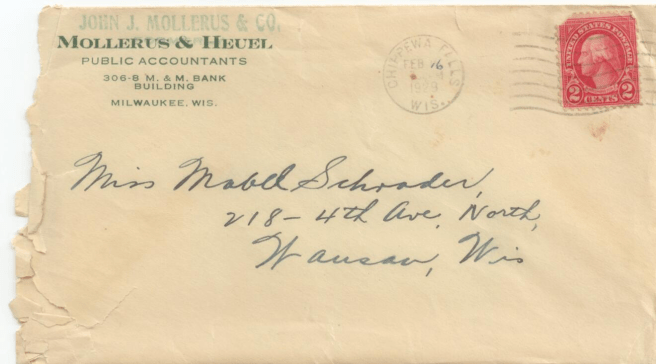 JOHN J. MOLLERUS & CO.
MOLLERUS & HEUEL
PUBLIC ACCOUNTANTS
306-8 M. & M. BANK
BUILDING
MILWAUKEE, WIS.
CHIPPEWA FALLS
FEB 16
1929
WIS.
UNITED STATES POSTAGE
2 CENTS 2
Miss Mabel Schrader,
218-4th Ave. North,
Wausau, Wis